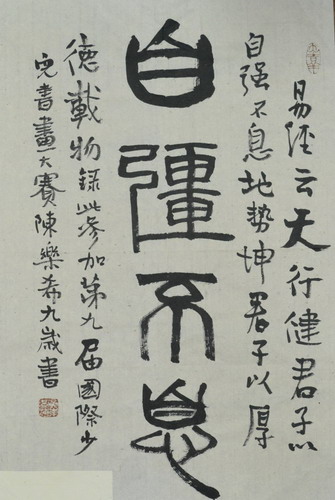 自彊不息
易經云天行健君子以
自强不息地勢坤君子以厚
德載物録此參加第九屆國際少
兒書畫大賽陳樂希九歲書